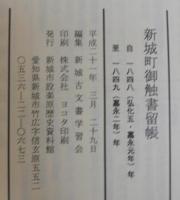 新城町御触書留帳
自 一八四八（弘化五・嘉永元年）年
至 一八四九（嘉永二年）年
平成二十一年 三月 二十九日
編集 新城古文書学習会
印刷 株式会社 ヨコタ印刷
発行 新城市設楽原歴史資料館
愛知県新城市竹広字信玄原五五二
〇五三六-二二-〇六七三